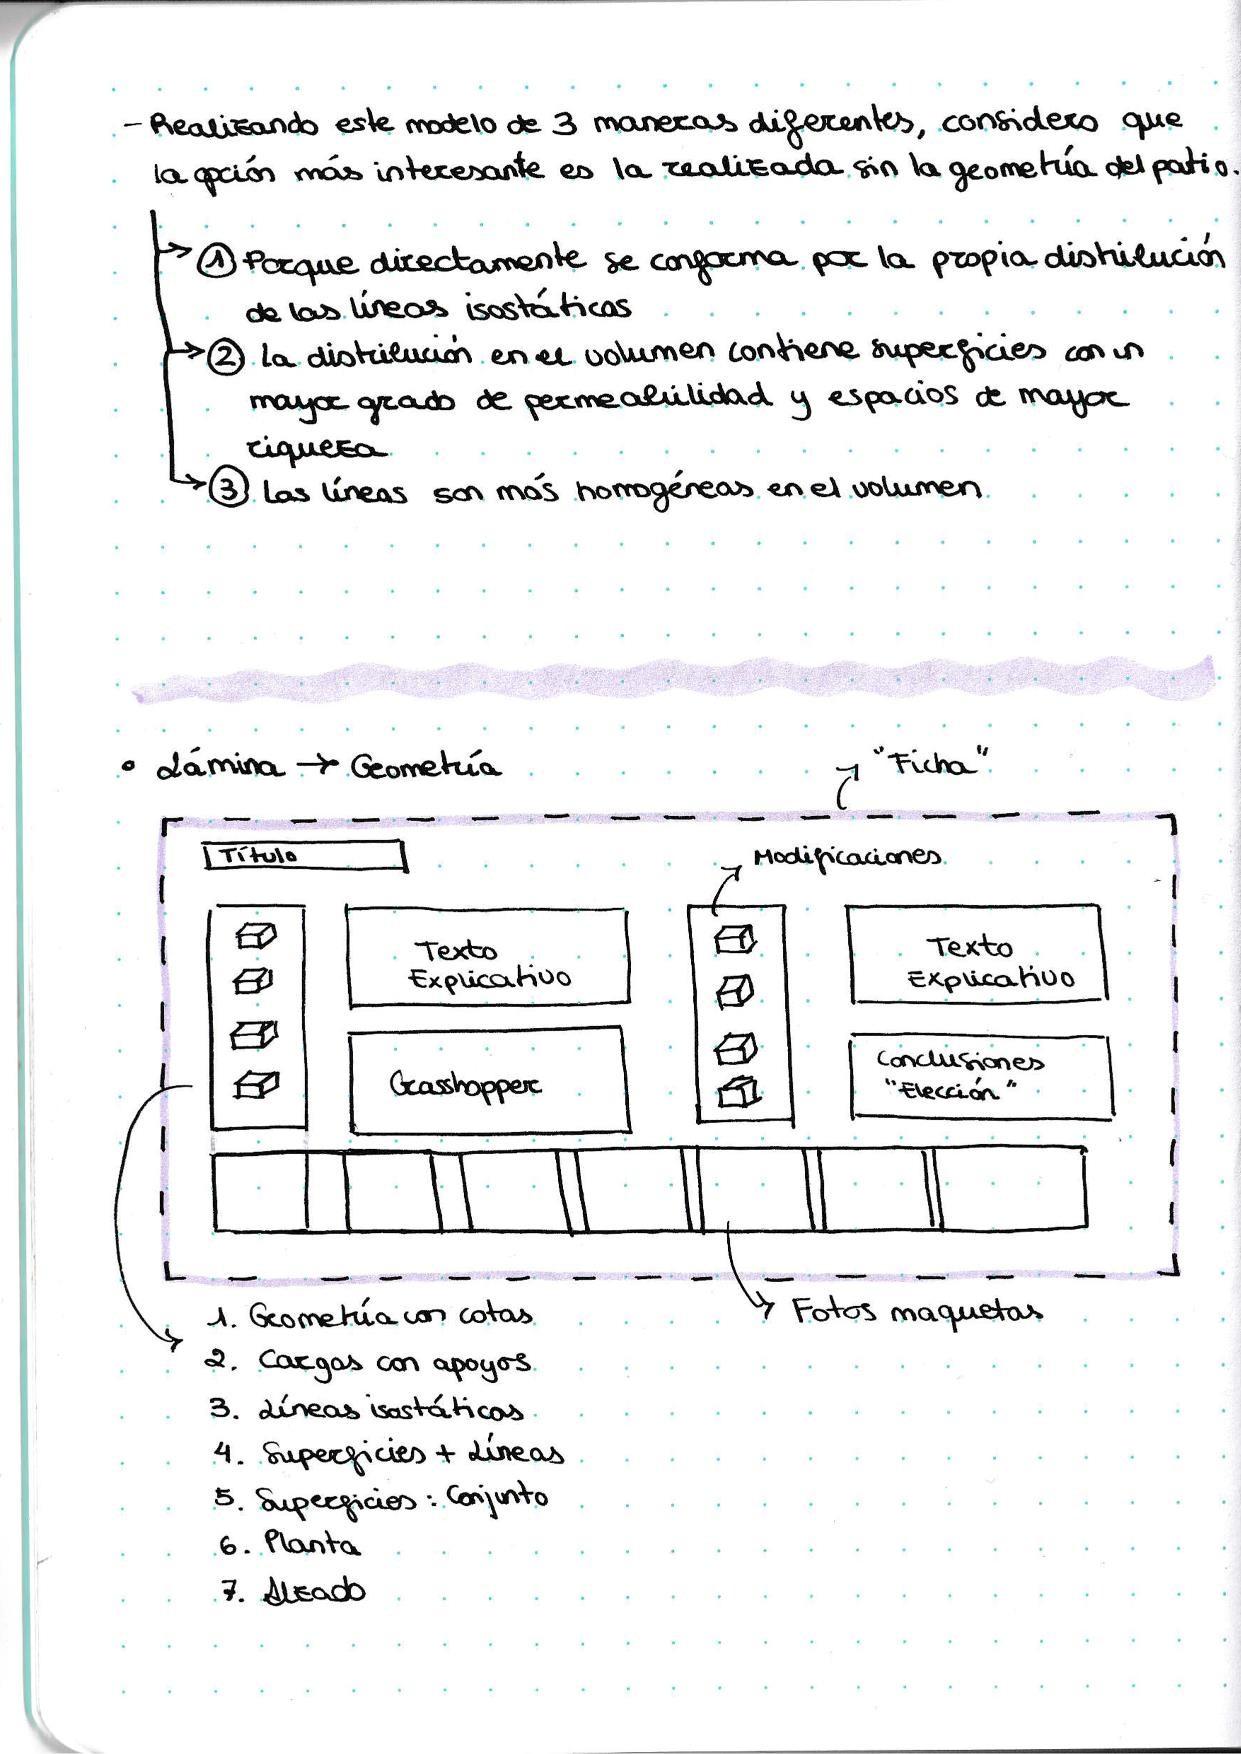 - Realizando este modelo de 3 maneras diferentes, considero que
la opción más interesante es la realizada sin la geometría del patio.
① Porque directamente se conforma por la propia distribución
de las líneas isostáticas
② La distribución en el volumen contiene superficies con un
mayor grado de permeabilidad y espacios de mayor
riqueza
③ Las líneas son más homogéneas en el volumen
• Lámina → Geometría
"Ficha"
Título
Modificaciones
Texto
Explicativo
Texto
Explicativo
Grasshopper
Conclusiones
"Elección"
Fotos maquetas
1. Geometría con cotas
2. Cargas con apoyos
3. Líneas isostáticas
4. Superficies + Líneas
5. Superficies: Conjunto
6. Planta
7. Alzado